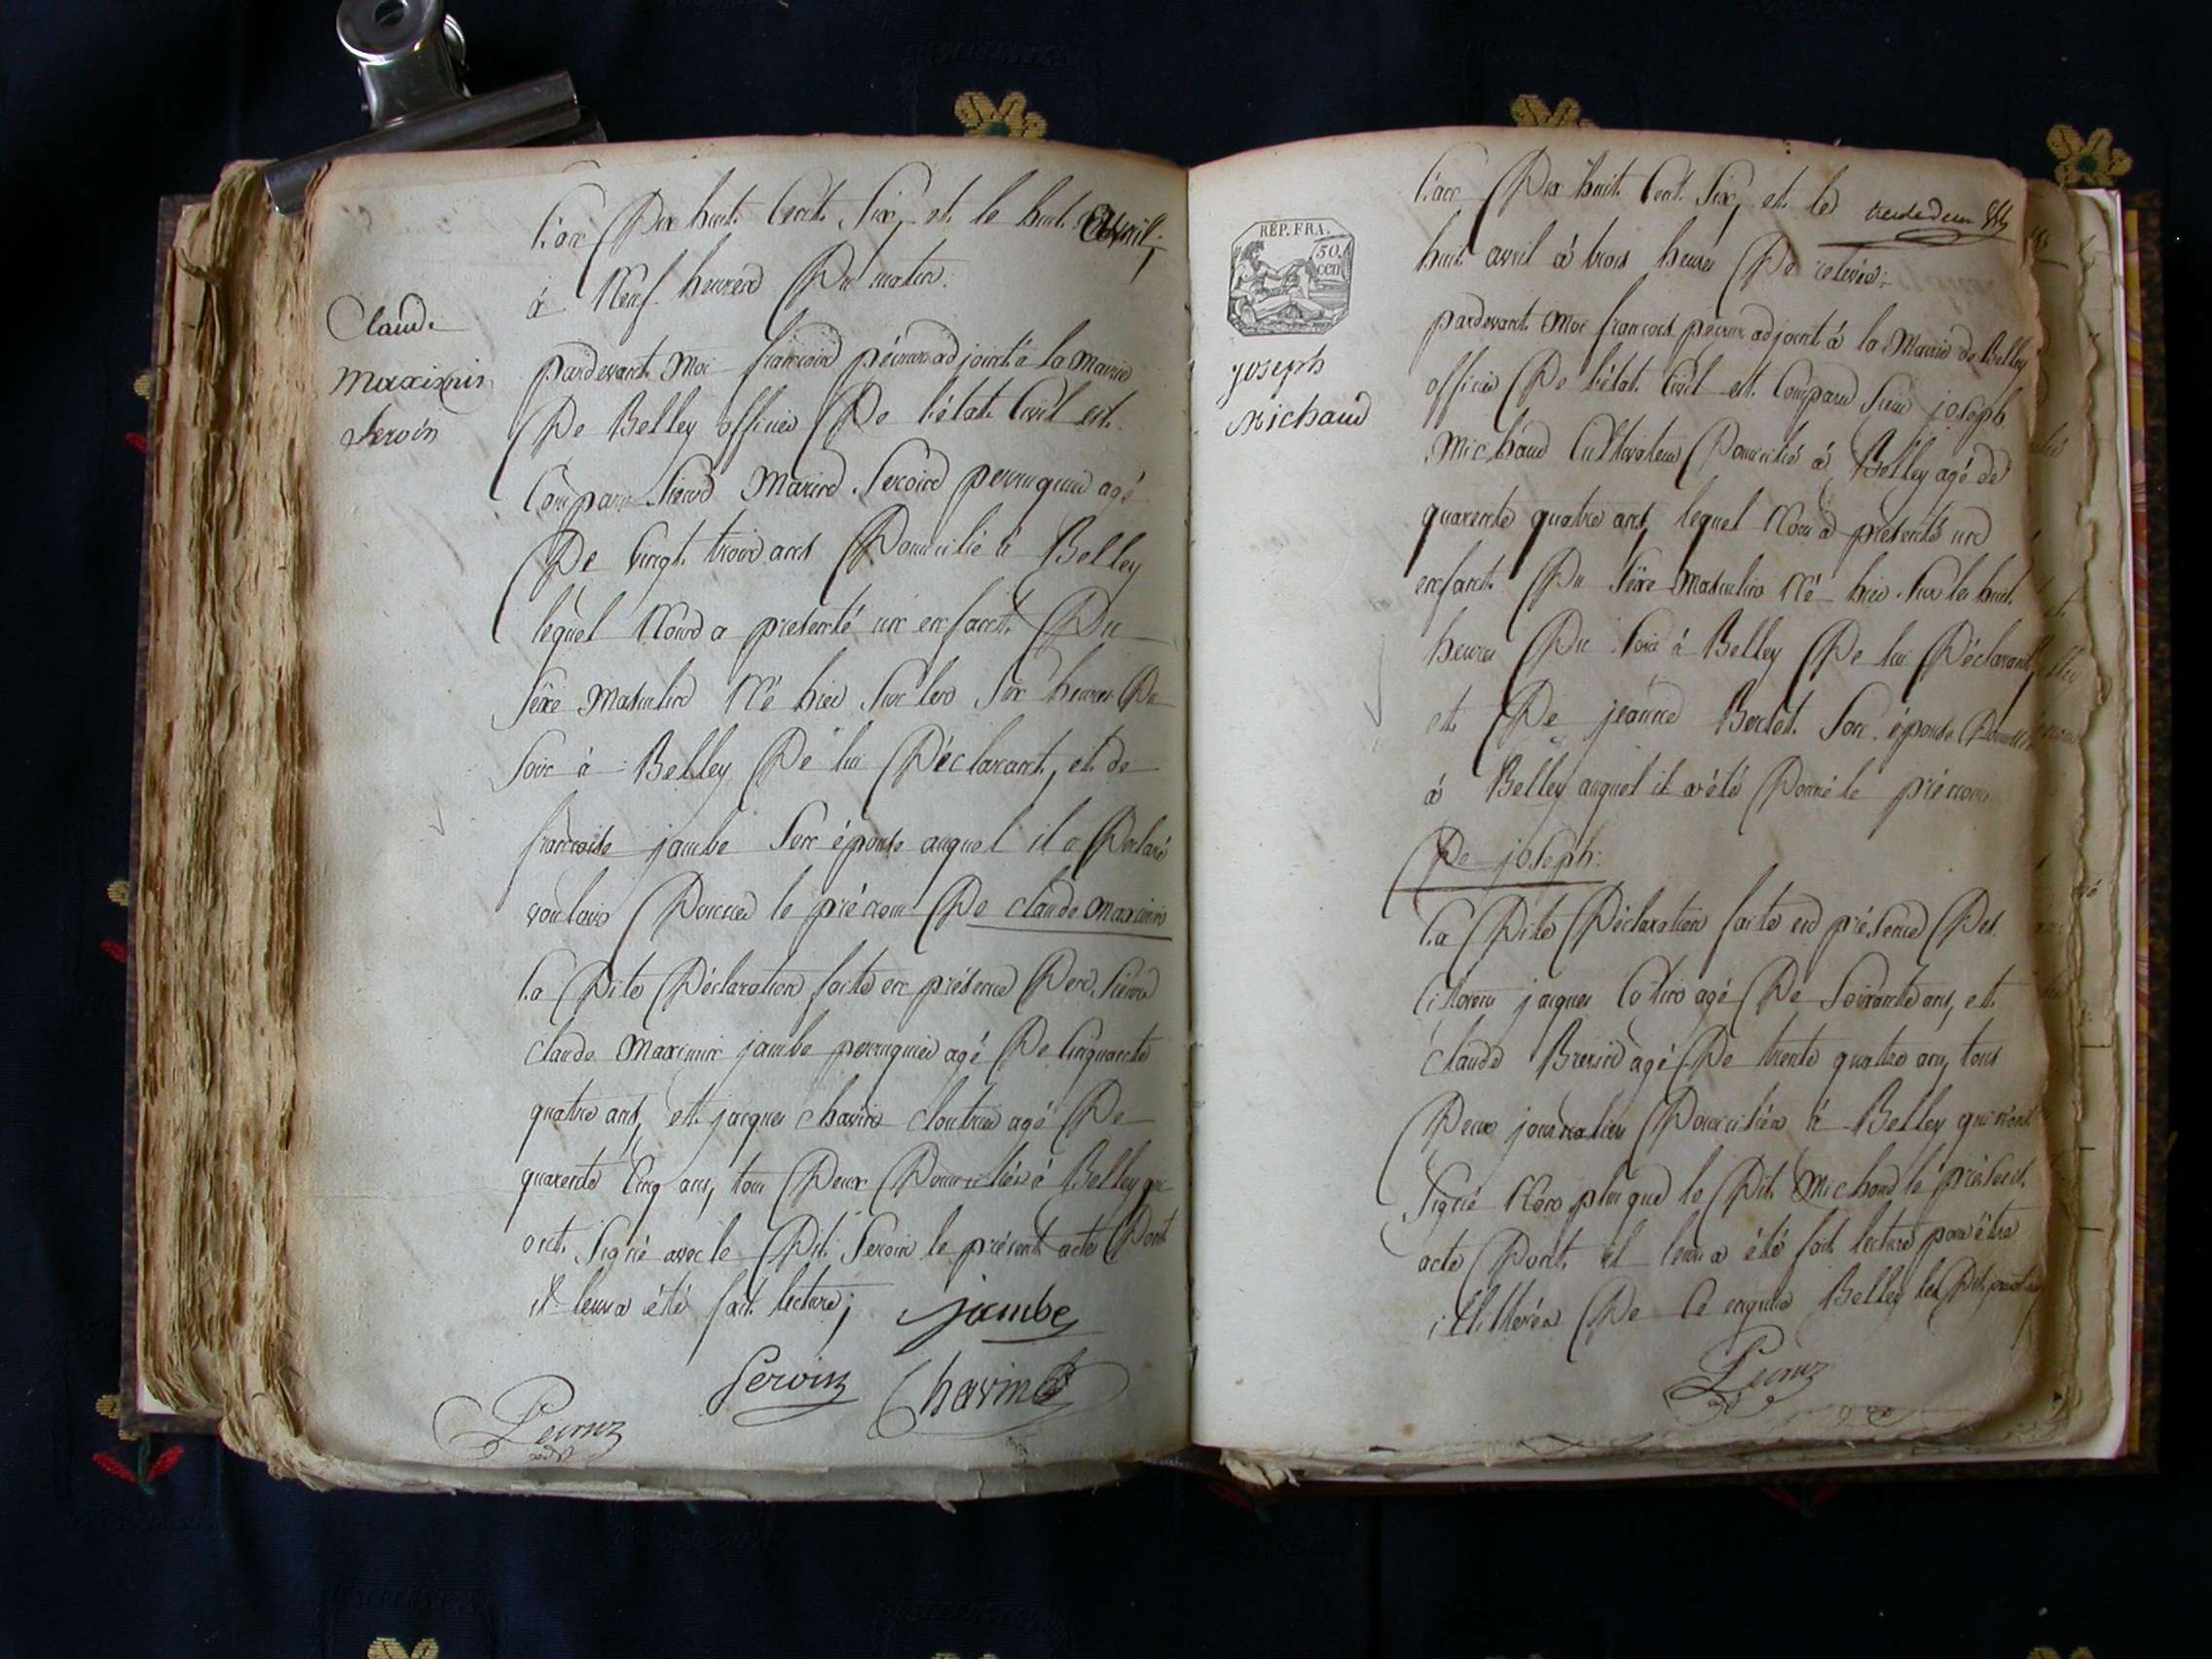 Claude
Maximin
Servin
L'an Dix huit Cent Six, et le huit Avril
à Neuf heures Du matin.
pardevant Moi françois adjoint à la Mairie
De Belley officier De l'état Civil est
Comparu Sieur Servin perruquier agé
De Vingt trois ans Domicilié à Belley
lequel Nous a presenté un enfant Du
Sexe Masculin Né hier Sur les Six heures Du
Soir à Belley De lui Déclarant, et de
françoise jambe Son épouse auquel il a Déclaré
vouloir Donner le prénom De claude Maximin
La Dite Déclaration faite en présence Des Sieurs
claude Maximin jambe perruquier agé De Cinquante
quatre ans, et jacques chavin cloutier agé De
quarente Cinq ans, tous Deux Domiciliés à Belley qui
ont Signé avec le Dit Servin le présent acte Dont
il leur a été fait lecture;
jambe
Servin Chavin
REP. FRA.
50
cen
joseph
Michaud
L'an Dix huit Cent Six, et le trente deux
huit avril à trois heures De relevée.
pardevant Moi françois adjoint à la Mairie de Belley
officier De l'état Civil est Comparu Sieur joseph
Michaud Cultivateur Domicilié à Belley agé de
quarente quatre ans, lequel Nous a présenté un
enfant Du Sexe Masculin Né hier Sur les huit
heures Du Soir à Belley De lui Déclarant,
et De jeanne Son épouse Domiciliés
à Belley auquel il a été Donné le prénom
De joseph.
La Dite Déclaration faite en présence Des
Citoyens jacques agé De Soixante ans, et
claude agé De trente quatre ans, tous
Deux journaliers Domiciliés à Belley qui n'ont
Signé Non plus que le Dit Michaud le présent
acte Dont il leur a été fait lecture pour être
illitérés De Ce enquis Belley les Dit jour et an